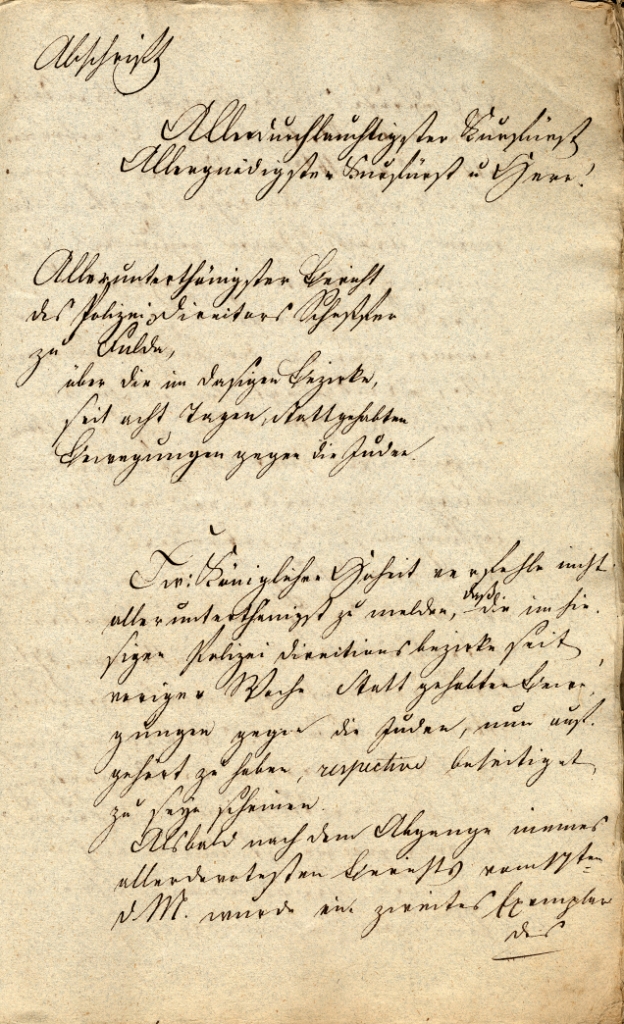 Abschrift
Allerdurchlauchtigster Kurfürst
Allergnädigster Kurfürst u Herr!
Allerunterthänigster Bericht
des Polizei Direktors Scheffer
zu Fulda,
über die im dasigen Bezirke,
seit acht Tagen, stattgehabten
Bewegungen gegen die Juden.
Ew: Königliche Hoheit verfehle nicht
allerunterthänigst zu melden, daß die im hie-
sigen Polizei direktionsbezirke seit
voriger Woche Statt gehabten Bewe-
gungen gegen die Juden, nun auf-
gehört zu haben, respective beseitiget
zu seyn scheinen.
Alsbald nach dem Abgange meines
allerdevotesten Berichts vom 17ten
d. M. wurde ein zweites Exemplar
des